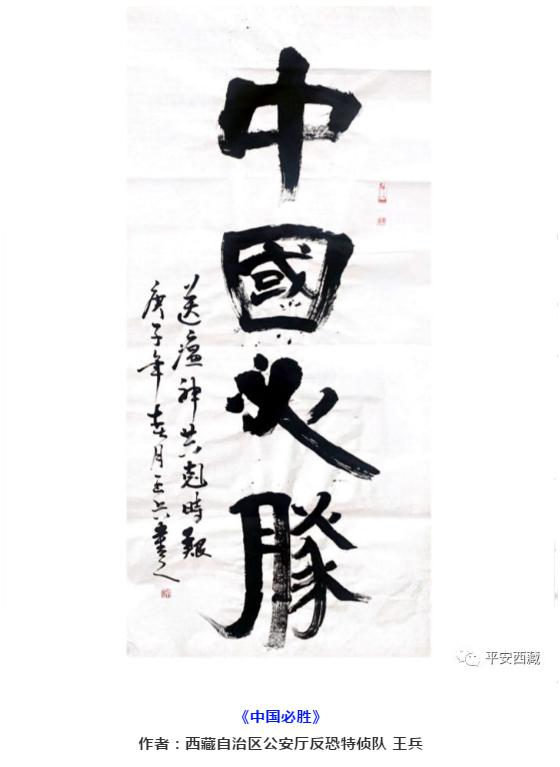 中國必勝
送瘟神共尅時艱
庚子年春月王兵書
平安西藏
《中国必胜》
作者：西藏自治区公安厅反恐特侦队 王兵